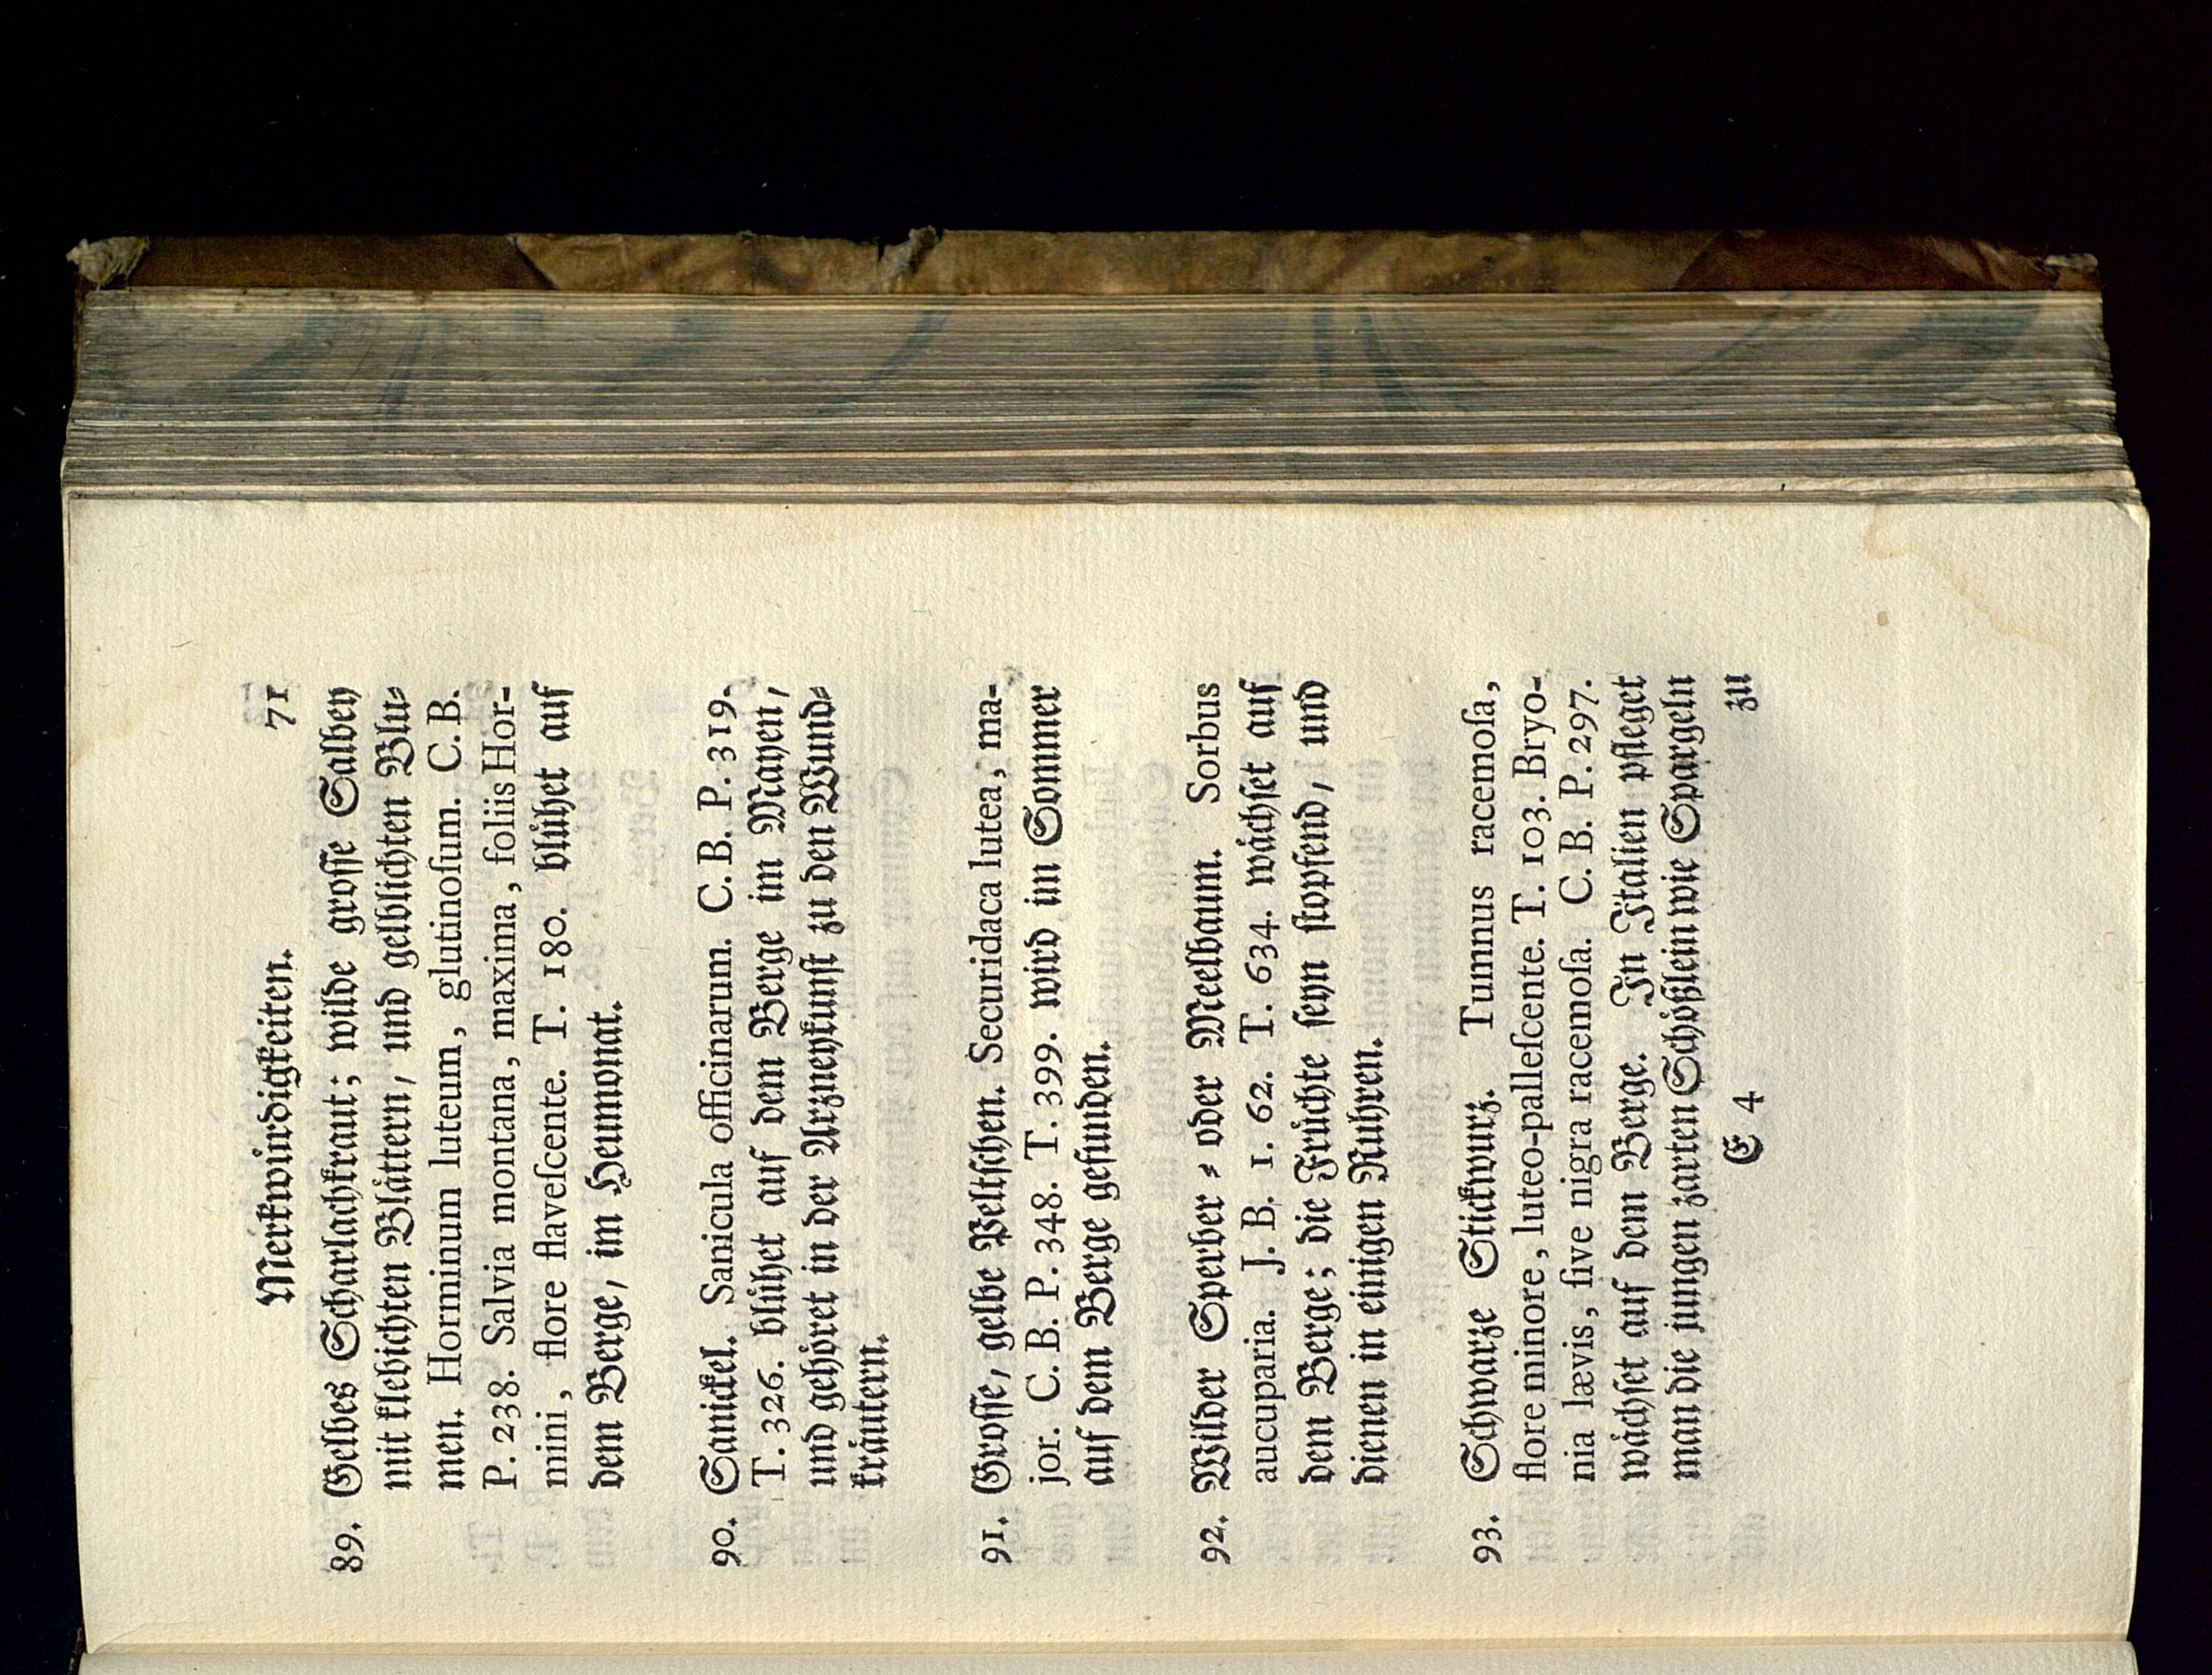 Merkwürdigkeiten. 71
89. Gelbes Scharlachkraut; wilde grosse Salbey
mit klebichten Blättern, und gelblichten Blu⸗
men. Horminum luteum, glutinoſum. C. B.
P. 238. Salvia montana, maxima, foliis Hor-
mini, flore flaveſcente. T. 180. blühet auf
dem Berge, im Heumonat.
90. Sanickel. Sanicula officinarum. C. B. P. 319.
T. 326. blühet auf dem Berge im Mayen,
und gehöret in der Arzneykunſt zu den Wund⸗
kräutern.
91. Groſſe, gelbe Peltſchen. Securidaca lutea, ma-
jor. C. B. P. 348. T. 399. wird im Sommer
auf dem Berge gefunden.
92. Wilder Sperber ⸗ oder Meelbaum. Sorbus
aucuparia. J. B. 1. 62. T. 634. wächſet auf
dem Berge; die Früchte ſeyn ſtopfend, und
dienen in einigen Ruhren.
93. Schwarze Stickwurz. Tumnus racemoſa,
flore minore, luteo-palleſcente. T. 103. Bryo-
nia lævis, ſive nigra racemoſa. C. B. P. 297.
wächſet auf dem Berge. In Italien pfleget
man die jungen zarten Schößlein wie Spargeln
E 4 zu